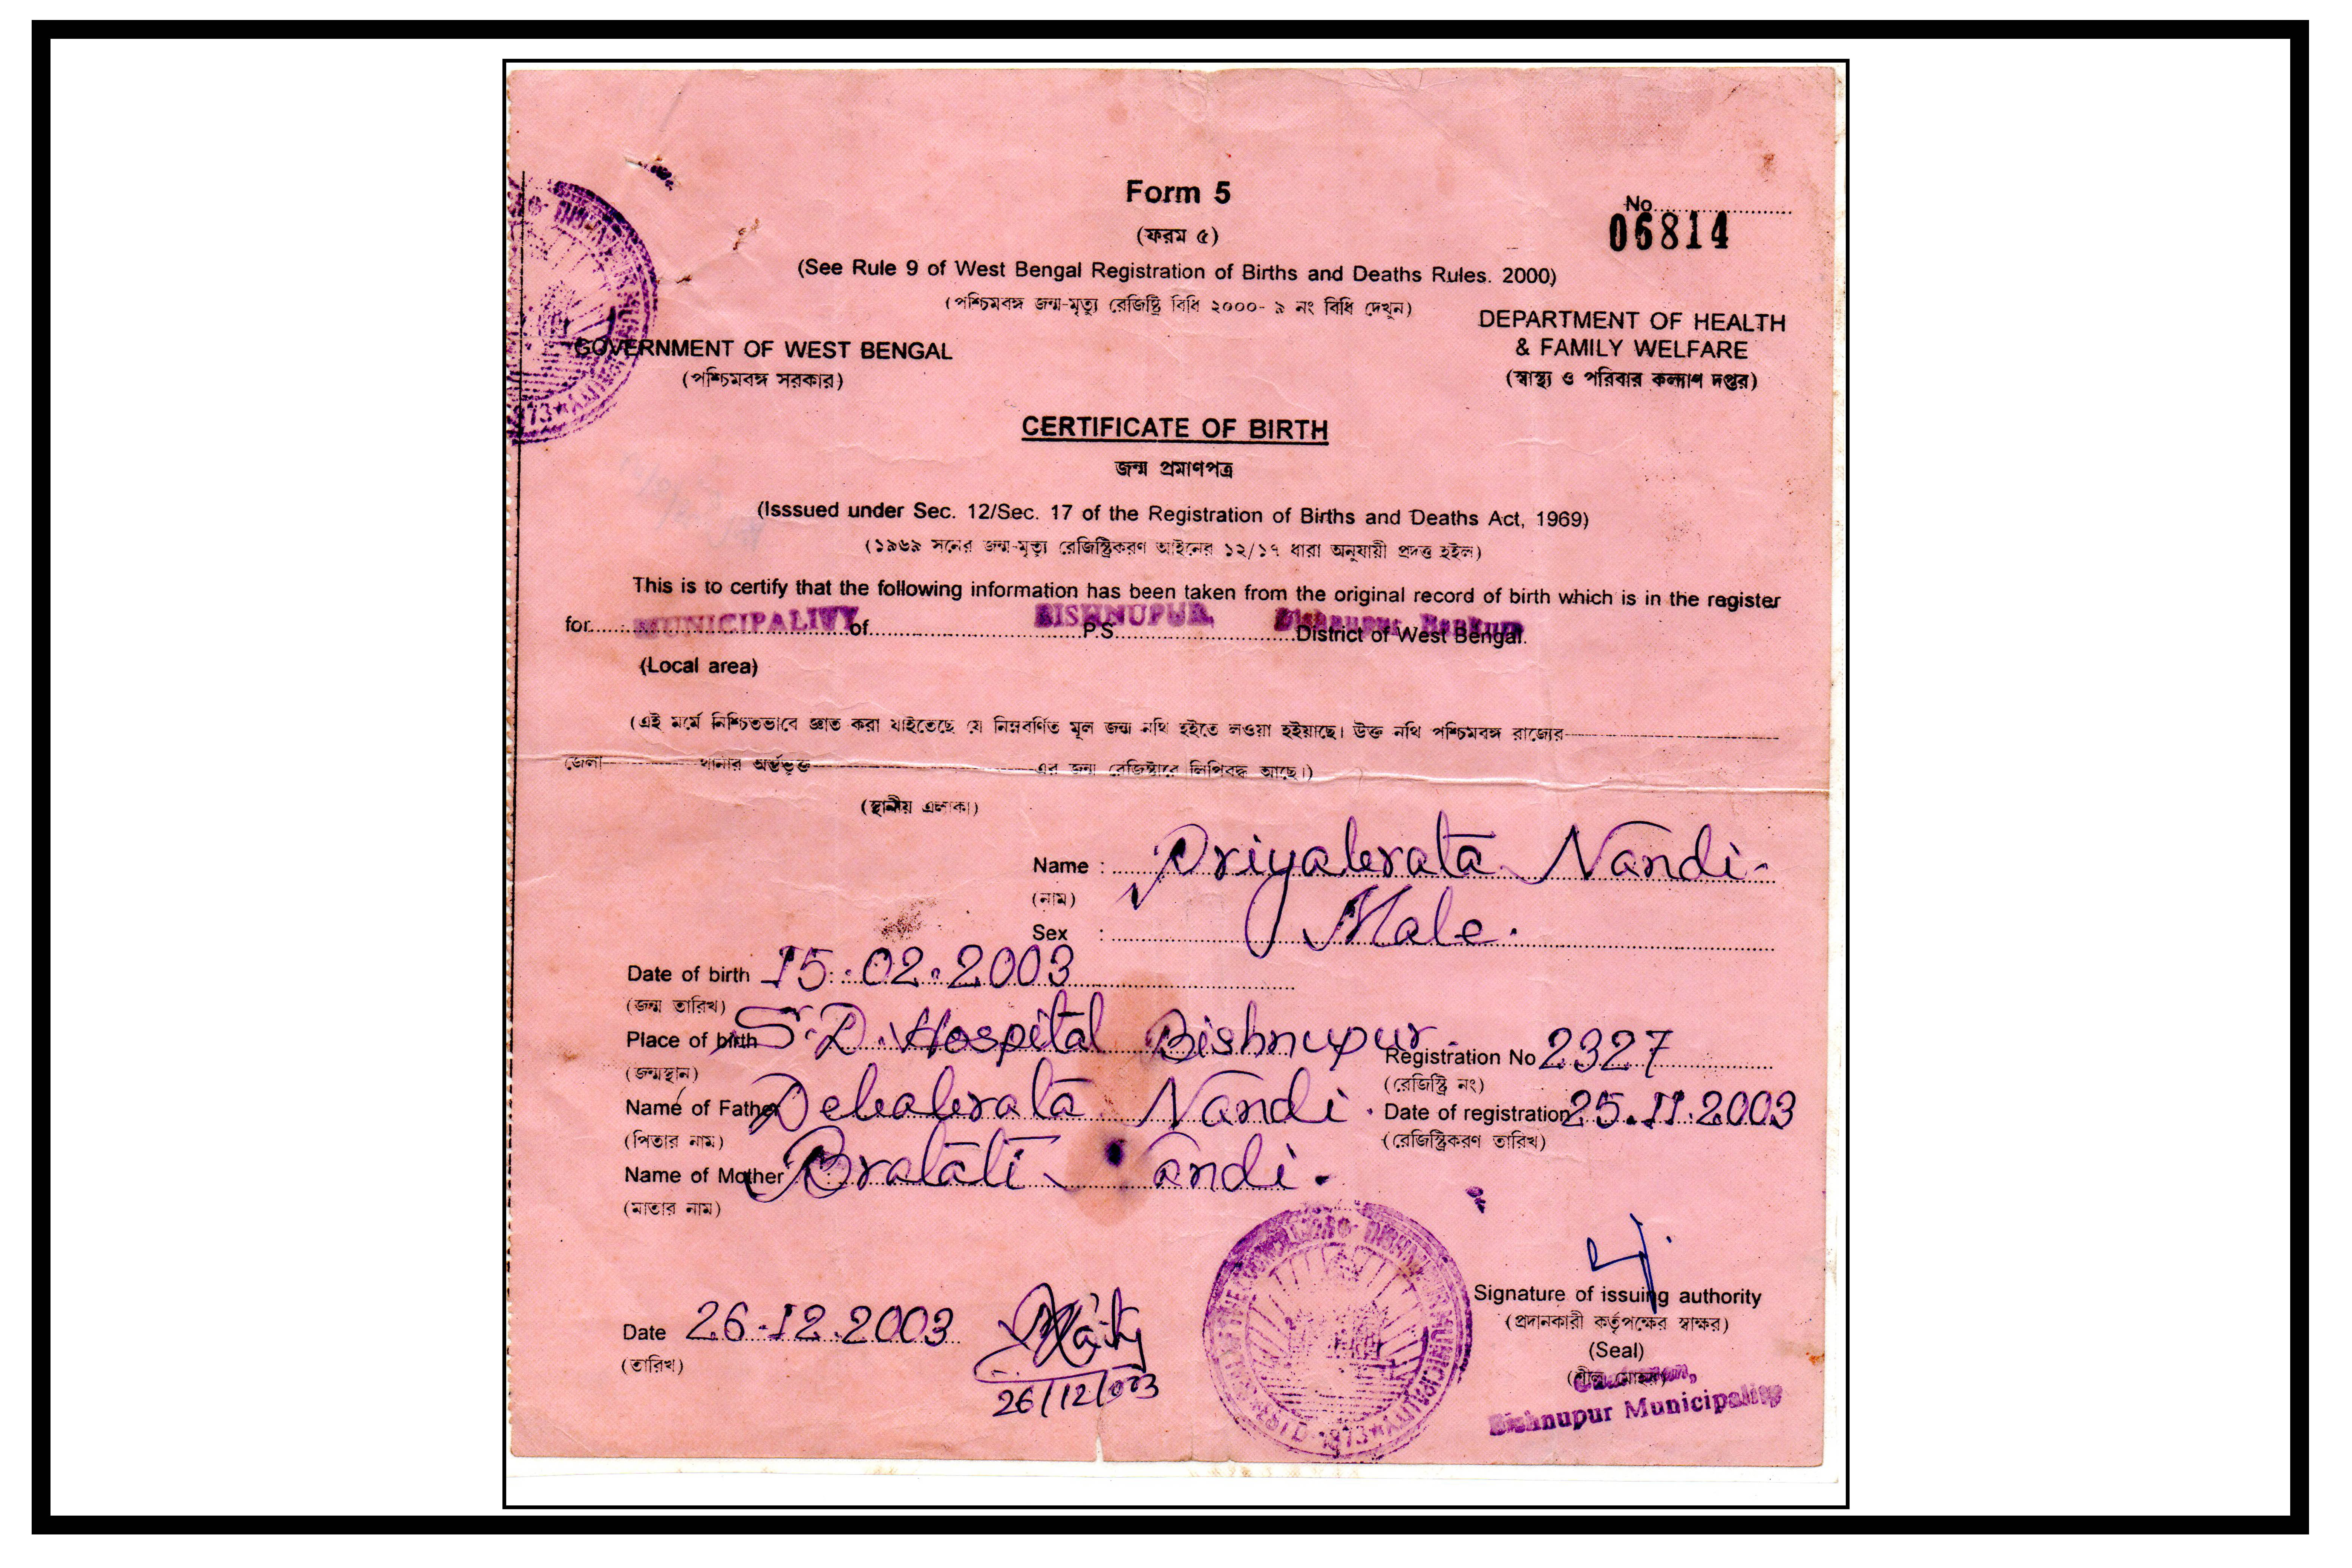 Form 5
(ফরম ৫)
No.
06814
(See Rule 9 of West Bengal Registration of Births and Deaths Rules. 2000)
(পশ্চিমবঙ্গ জন্ম-মৃত্যু রেজিষ্ট্রি বিধি ২০০০- ৯ নং বিধি দেখুন)
GOVERNMENT OF WEST BENGAL
(পশ্চিমবঙ্গ সরকার)
DEPARTMENT OF HEALTH
& FAMILY WELFARE
(স্বাস্থ্য ও পরিবার কল্যাণ দপ্তর)
CERTIFICATE OF BIRTH
জন্ম প্রমাণপত্র
(Isssued under Sec. 12/Sec. 17 of the Registration of Births and Deaths Act, 1969)
(১৯৬৯ সনের জন্ম-মৃত্যু রেজিস্ট্রিকরণ আইনের ১২/১৭ ধারা অনুযায়ী প্রদত্ত হইল)
This is to certify that the following information has been taken from the original record of birth which is in the register
for MUNICIPALITY of BISHNUPUR P.S. Bishnupur, District of West Bengal.
(Local area)
(এই মর্মে নিশ্চিতভাবে জ্ঞাত করা যাইতেছে যে নিম্নবর্ণিত মূল জন্ম নথি হইতে লওয়া হইয়াছে। উক্ত নথি পশ্চিমবঙ্গ রাজ্যের
জেলা থানার অর্ন্তভূক্ত এর জন্ম রেজিষ্টারে লিপিবদ্ধ আছে।)
(স্থানীয় এলাকা)
Name : Priyabrata Nandi
(নাম)
Sex : Male.
Date of birth 15.02.2003
(জন্ম তারিখ)
Place of birth S.D. Hospital Bishnupur.
(জন্মস্থান)
Registration No 2327
(রেজিস্ট্রি নং)
Name of Father Debabrata Nandi.
(পিতার নাম)
Date of registration 25.11.2003
(রেজিস্ট্রিকরণ তারিখ)
Name of Mother Bratati Nandi.
(মাতার নাম)
Signature of issuing authority
(প্রদানকারী কর্তৃপক্ষের স্বাক্ষর)
(Seal)
Date 26.12.2003
(তারিখ)
26/12/003
Bishnupur Municipality